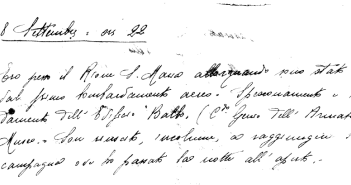 8 Settembre - ore 22
Ero presso il Rione S. Marco allorquando sono stato
dal primo bombardamento aereo. Sfrenamento
damento dell' Edificio Balbo, ( C.do Genio dell' Armata
Museo. - Son riuscito, incolume, a raggiungere
campagna ove ho passato la notte all' aperto. -